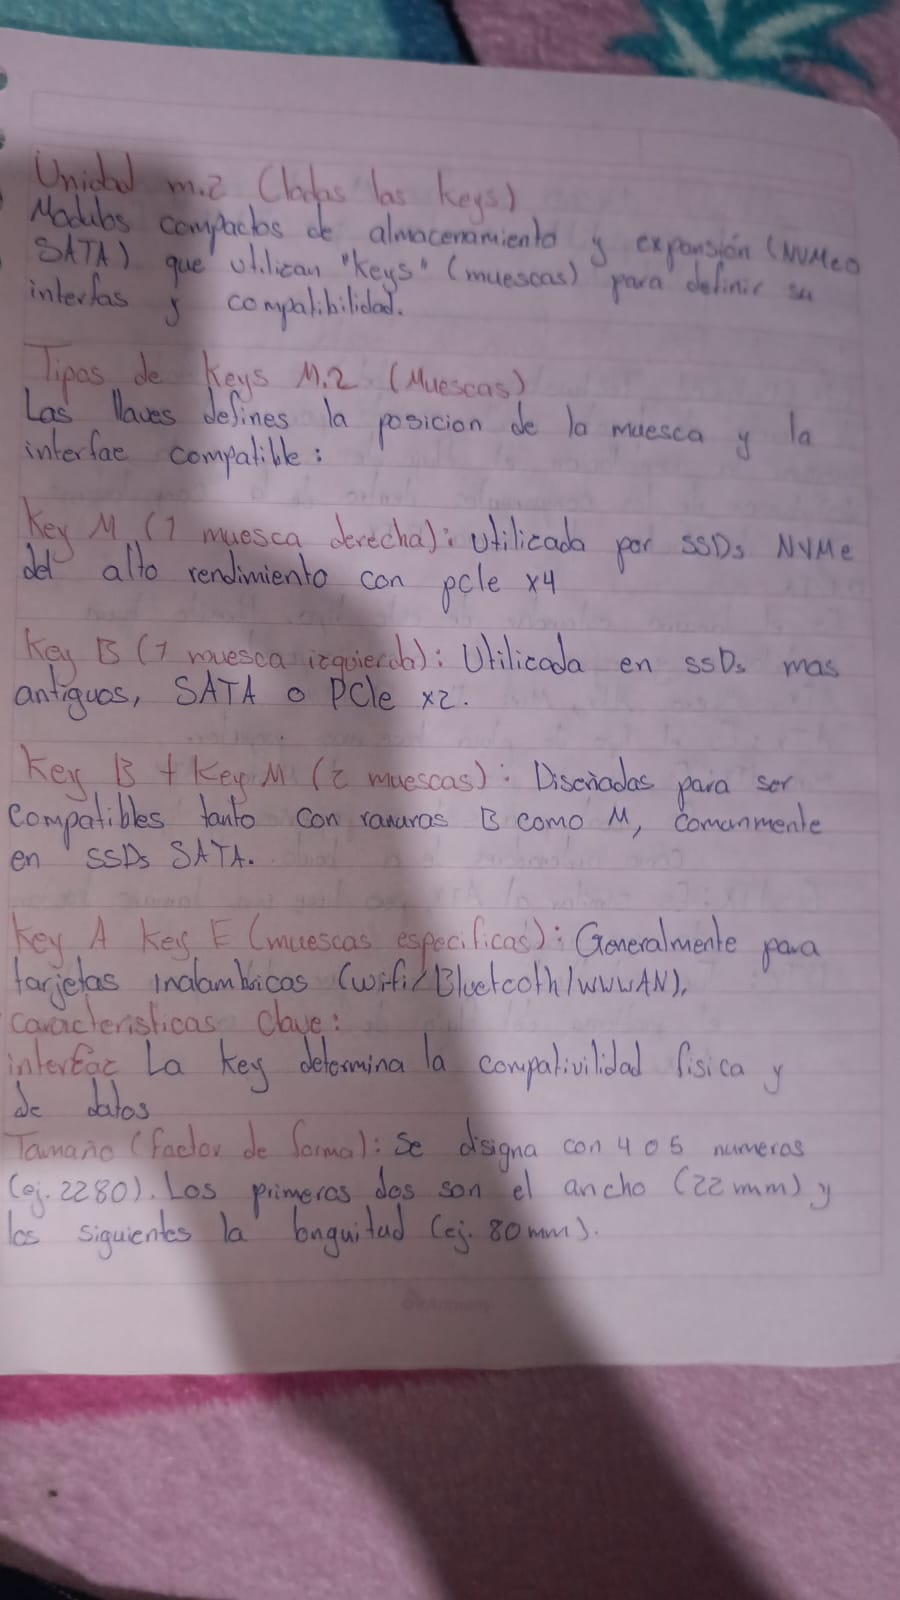 Unidad m.2 (todas las keys)
Modulos compactos de almacenamiento y expansión (NVMe o
SATA) que utilizan "keys" (muescas) para definir su
interfas y compatibilidad.
Tipos de Keys M.2 (Muescas)
Las llaves defines la posicion de la muesca y la
interfae compatible:
Key M (1 muesca derecha): Utilizada por SSDs NVMe
del alto rendimiento con pcIe x4
Key B (1 muesca izquierda): Utilizada en ssDs mas
antiguos, SATA o PCIe x2.
Key B + Key M (2 muescas): Diseñadas para ser
Compatibles tanto con ranuras B como M, comanmente
en SSDs SATA.
Key A Key E (muescas especificas): Generalmente para
tarjetas inalambricas (wifi/Bluetooth/WWWAN),
caracteristicas clave:
interfaz La key determina la compativilidad fisica y
de datos
Tamaño (factor de forma): Se disigna con 4 o 5 numeros
(ej. 2280). Los primeros dos son el ancho (22 mm) y
los siguientes la longuitud (ej. 80 mm).